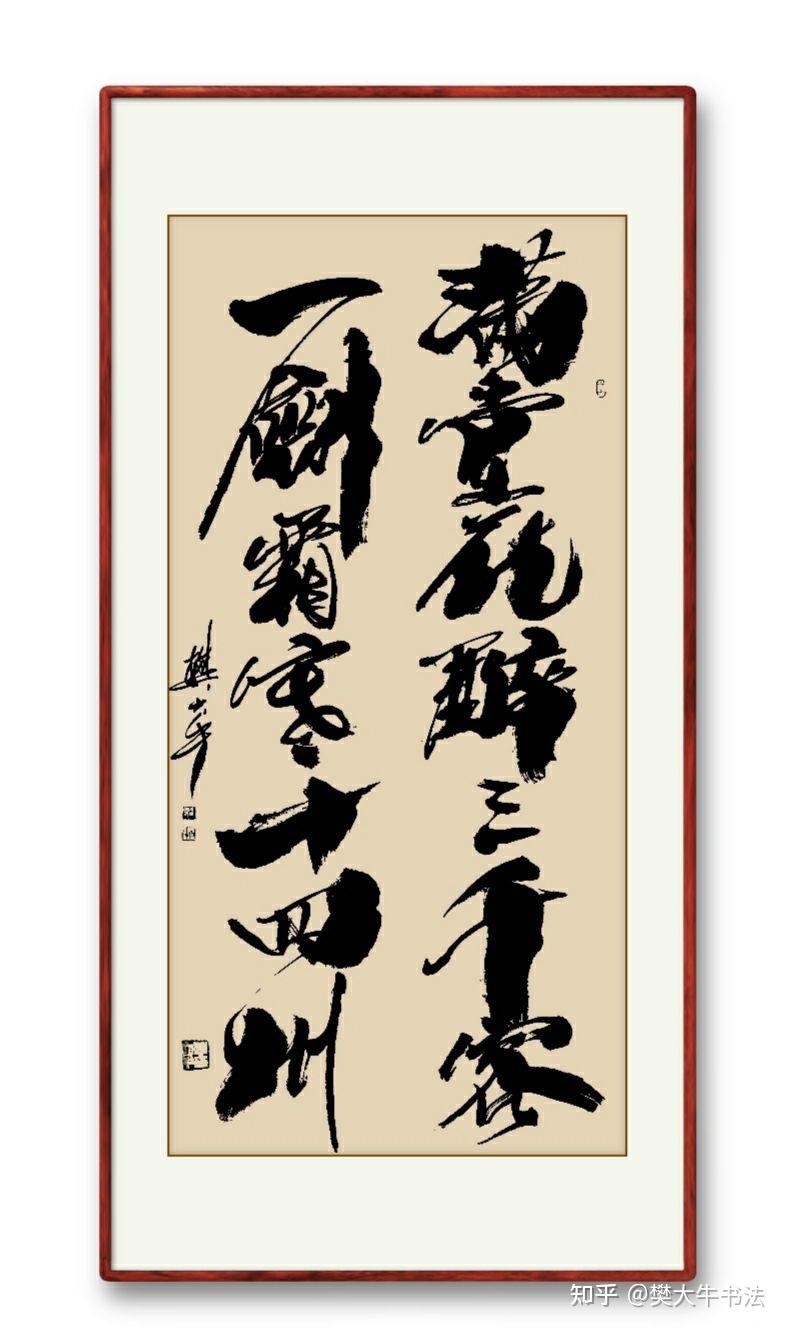 满堂花醉三千客
一劍霜寒十四州
樊
知乎 @樊大牛书法